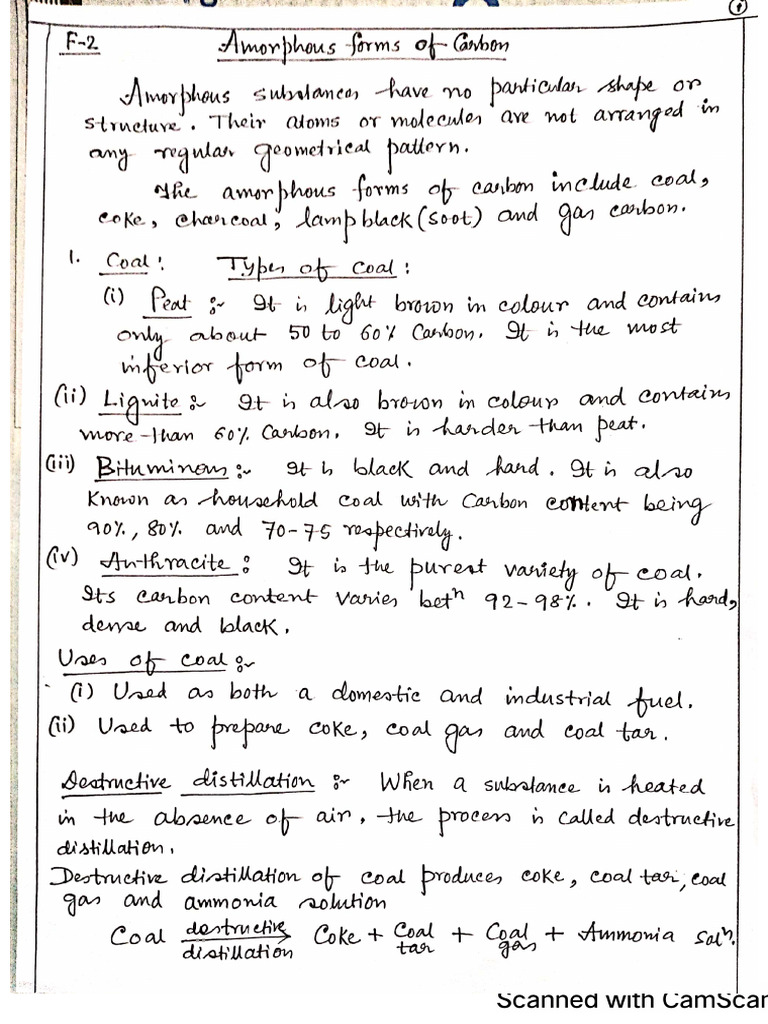 1
F-2 Amorphous forms of Carbon
Amorphous substances have no particular shape or
structure. Their atoms or molecules are not arranged in
any regular geometrical pattern.
The amorphous forms of carbon include coal,
coke, charcoal, lampblack (soot) and gas carbon.
1. Coal: Types of coal:
(i) Peat :- It is light brown in colour and contains
only about 50 to 60% Carbon. It is the most
inferior form of coal.
(ii) Lignite :- It is also brown in colour and contains
more than 60% Carbon. It is harder than peat.
(iii) Bituminous :- It is black and hard. It is also
Known as household coal with Carbon content being
90%, 80% and 70-75 respectively.
(iv) Anthracite : It is the purest variety of coal.
Its carbon content varies betn 92-98%. It is hard,
dense and black.
Uses of coal :-
(i) Used as both a domestic and industrial fuel.
(ii) Used to prepare coke, coal gas and coal tar.
Destructive distillation :- When a substance is heated
in the absence of air, the process is called destructive
distillation.
Destructive distillation of coal produces coke, coal tar, coal
gas and ammonia solution
Coal destructive distillation → Coke + Coal tar + Coal gas + Ammonia soln.
Scanned with CamScan